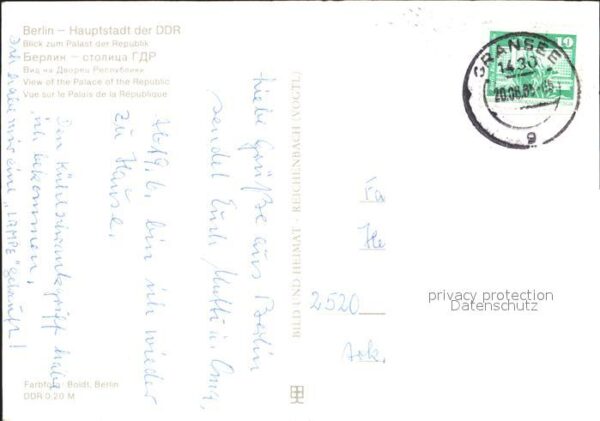 Berlin – Hauptstadt der DDR
Blick zum Palast der Republik
Берлин – столица ГДР
Вид на Дворец Республики
View of the Palace of the Republic
Vue sur le Palais de la République
Liebe Grüße aus Berlin
sendet Euch Mutti u. Oma,
19.6. bin ich wieder
zu Hause.
Den Kühlschrankgriff habe
ich bekommen,
mir eine „LAMPE" gekauft!
BILD UND HEIMAT · REICHENBACH (VOGTL)
GRANSEE
14.30
20.06.85
g
10
Fa
He
2520
Ark.
privacy protection
Datenschutz
Farbfoto: Boldt, Berlin
DDR 0,20 M